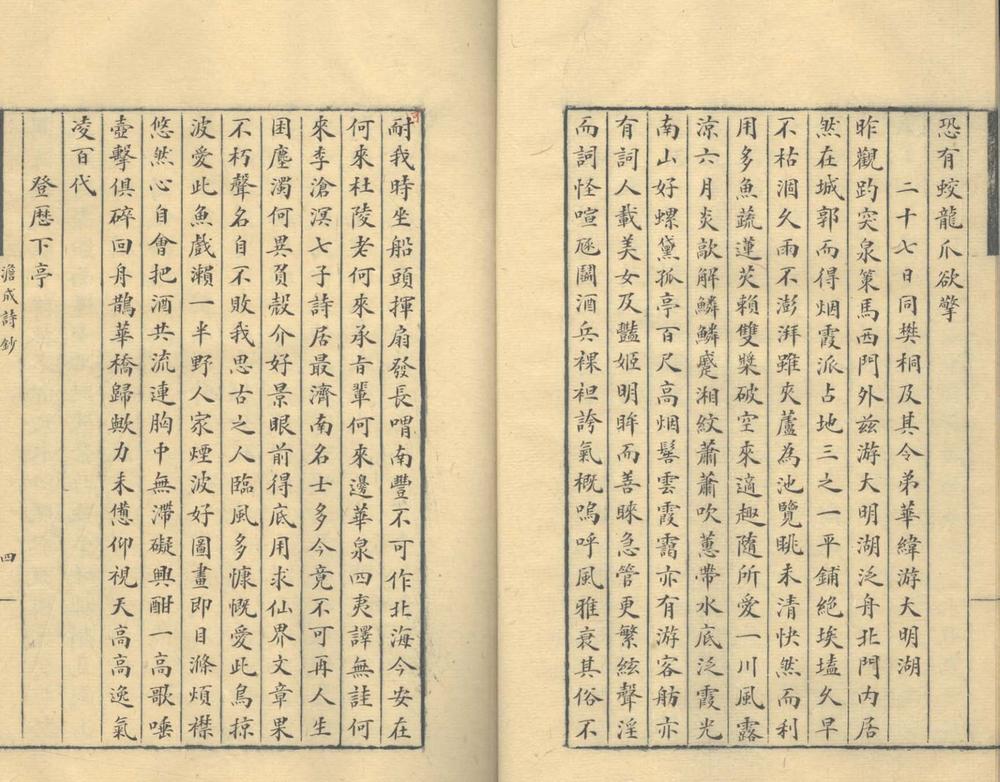 恐有蛟龍爪欲擎
二十七日同樊桐及其令弟華緯游大明湖
昨觀趵突泉策馬西門外兹游大明湖泛舟北門內居
然在城郭而得烟霞派占地三之一平鋪絕埃壒久旱
不枯涸久雨不澎湃雖夾蘆為池覽眺未清快然而利
用多魚蔬蓮芡賴雙槳破空來適趣隨所愛一川風露
涼六月炎歊解鱗鱗蹙湘紋蕭蕭吹蕙帶水底泛霞光
南山好螺黛孤亭百尺高烟髻雲霞靄亦有游客舫亦
有詞人載美女及豔姬明眸而善睞急管更繁絃聲淫
而詞怪喧豗鬬酒兵裸袒誇氣概嗚呼風雅衰其俗不
耐我時坐船頭揮扇發長喟南豐不可作北海今安在
何來杜陵老何來承旨輩何來邊華泉四夷譯無詿何
來李滄溟七子詩居最濟南名士多今竟不可再人生
困塵濁何異負殼介好景眼前得底用求仙界文章果
不朽聲名自不敗我思古之人臨風多慷慨愛此鳥掠
波愛此魚戲瀨一半野人家煙波好圖畫即目滌煩襟
悠然心自會把酒共流連胸中無滯礙興酣一高歌唾
壺擊俱碎回舟鵲華橋歸歟力未憊仰視天高高逸氣
凌百代
登歷下亭
澹成詩鈔
四